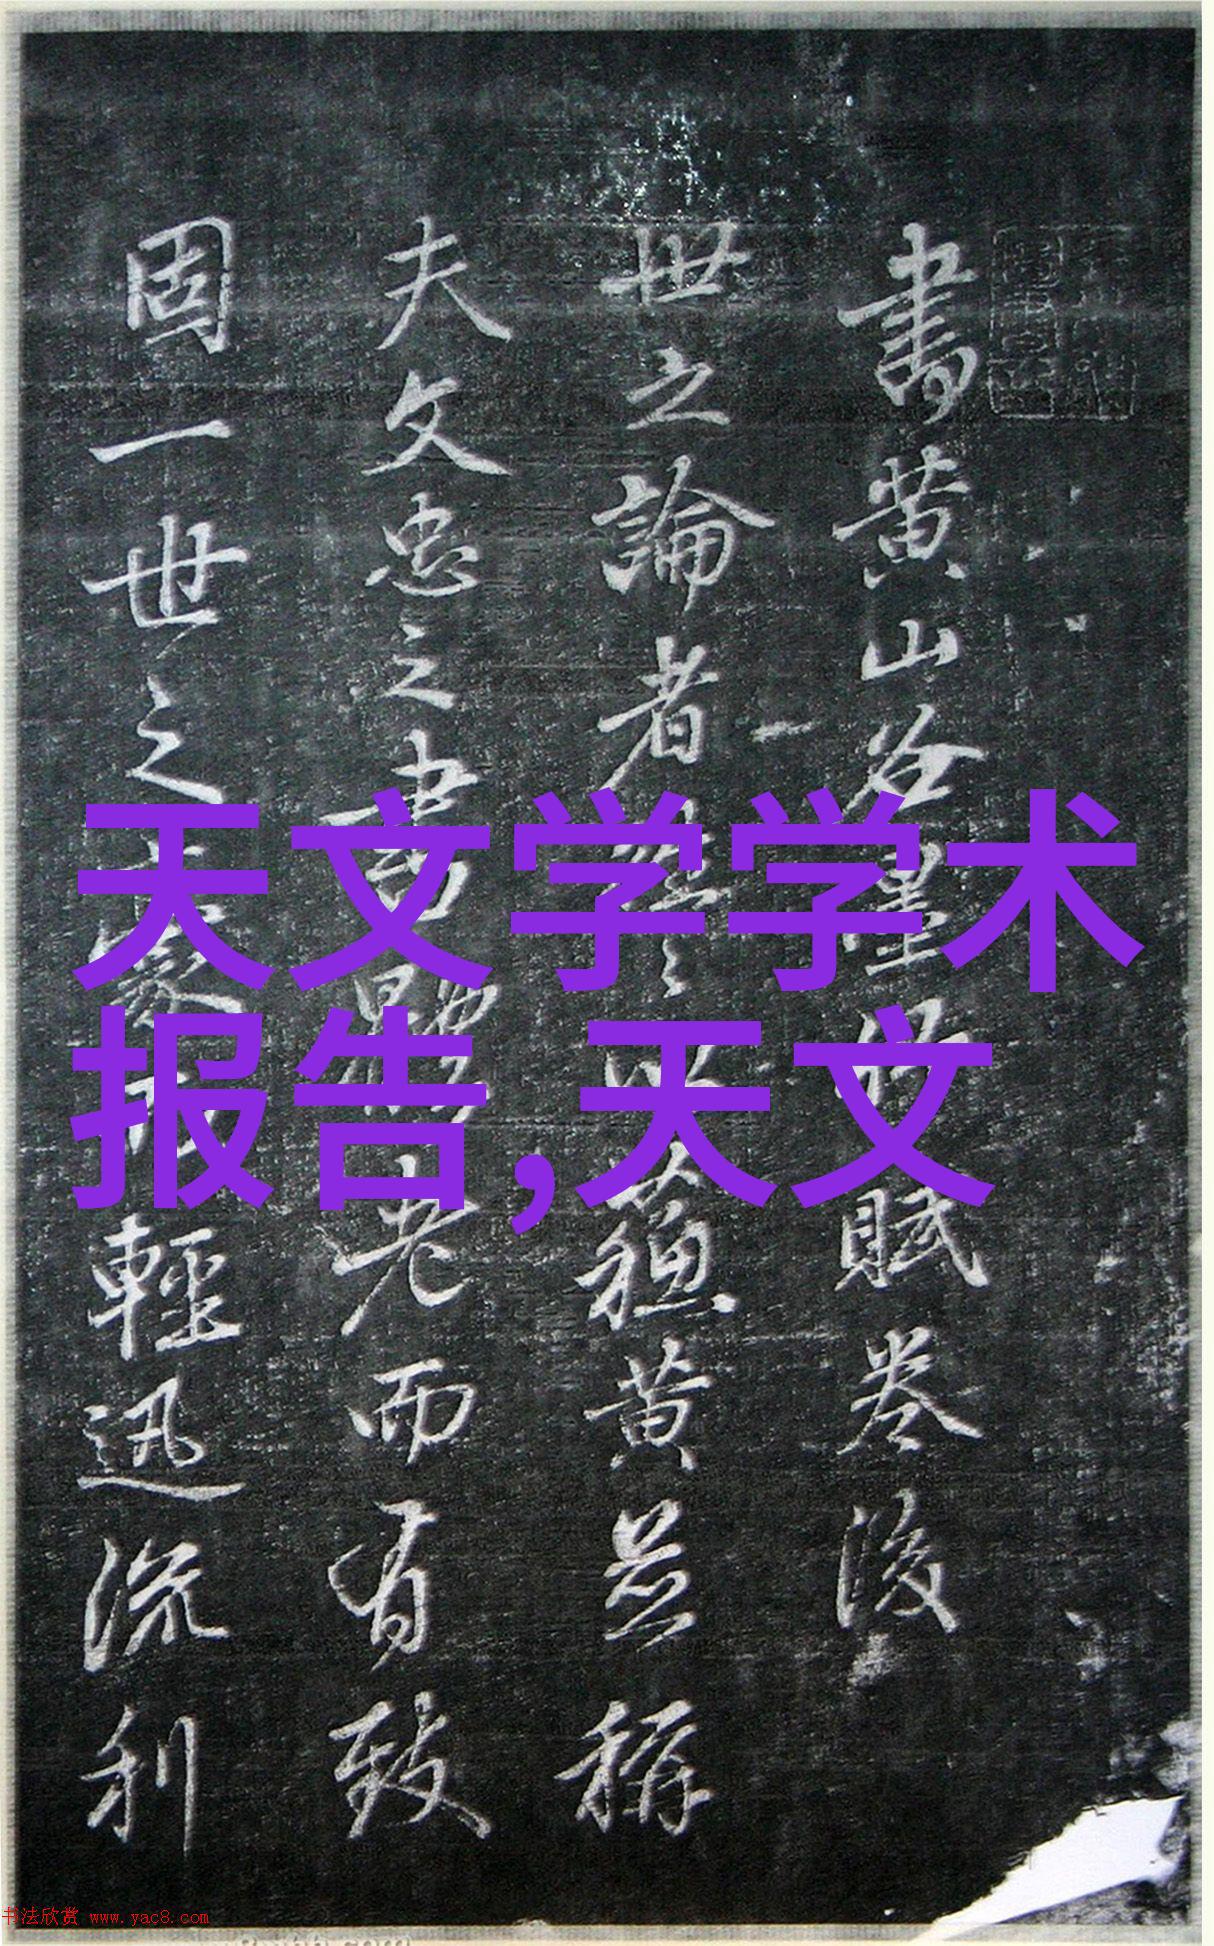 書黄山谷
賦卷後
世之論者
以蘇黄並稱
夫文忠之書
老而有致
固一世之
輕迅流利
天文学学术
报告,天文
书法欣赏 www.yac8.com